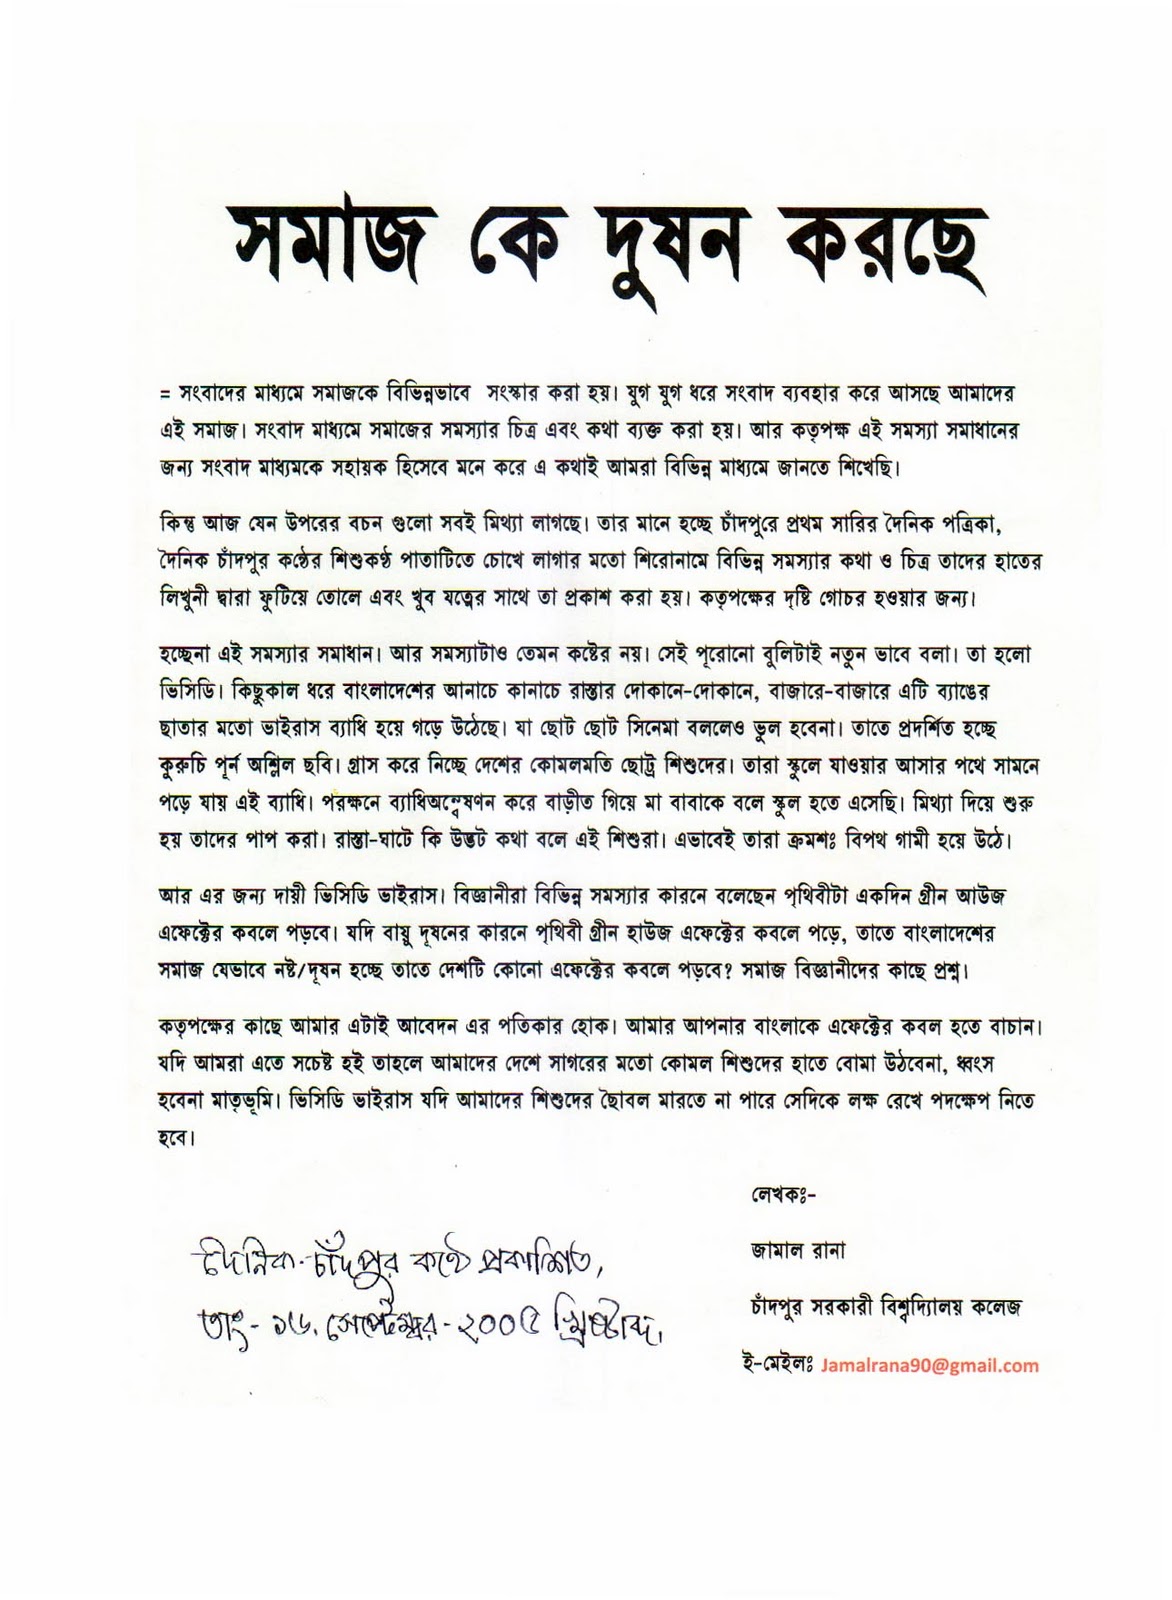 সমাজ কে দুষন করছে
= সংবাদের মাধ্যমে সমাজকে বিভিন্নভাবে সংস্কার করা হয়। যুগ যুগ ধরে সংবাদ ব্যবহার করে আসছে আমাদের
এই সমাজ। সংবাদ মাধ্যমে সমাজের সমস্যার চিত্র এবং কথা ব্যক্ত করা হয়। আর কতৃপক্ষ এই সমস্যা সমাধানের
জন্য সংবাদ মাধ্যমকে সহায়ক হিসেবে মনে করে এ কথাই আমরা বিভিন্ন মাধ্যমে জানতে শিখেছি।
কিন্তু আজ যেন উপরের বচন গুলো সবই মিথ্যা লাগছে। তার মানে হচ্ছে চাঁদপুরে প্রথম সারির দৈনিক পত্রিকা,
দৈনিক চাঁদপুর কণ্ঠের শিশুকণ্ঠ পাতাটিতে চোখে লাগার মতো শিরোনামে বিভিন্ন সমস্যার কথা ও চিত্র তাদের হাতের
লিখুনী দ্বারা ফুটিয়ে তোলে এবং খুব যত্নের সাথে তা প্রকাশ করা হয়। কতৃপক্ষের দৃষ্টি গোচর হওয়ার জন্য।
হচ্ছেনা এই সমস্যার সমাধান। আর সমস্যাটাও তেমন কষ্টের নয়। সেই পূরোনো বুলিটাই নতুন ভাবে বলা। তা হলো
ভিসিডি। কিছুকাল ধরে বাংলাদেশের আনাচে কানাচে রাস্তার দোকানে-দোকানে, বাজারে-বাজারে এটি ব্যাঙের
ছাতার মতো ভাইরাস ব্যাধি হয়ে গড়ে উঠেছে। যা ছোট ছোট সিনেমা বললেও ভুল হবেনা। তাতে প্রদর্শিত হচ্ছে
কুরুচি পূর্ন অশ্লিল ছবি। গ্রাস করে নিচ্ছে দেশের কোমলমতি ছোট্র শিশুদের। তারা স্কুলে যাওয়ার আসার পথে সামনে
পড়ে যায় এই ব্যাধি। পরক্ষনে ব্যাধিঅন্বেষণন করে বাড়ীত গিয়ে মা বাবাকে বলে স্কুল হতে এসেছি। মিথ্যা দিয়ে শুরু
হয় তাদের পাপ করা। রাস্তা-ঘাটে কি উদ্ভট কথা বলে এই শিশুরা। এভাবেই তারা ক্রমশঃ বিপথ গামী হয়ে উঠে।
আর এর জন্য দায়ী ভিসিডি ভাইরাস। বিজ্ঞানীরা বিভিন্ন সমস্যার কারনে বলেছেন পৃথিবীটা একদিন গ্রীন আউজ
এফেক্টের কবলে পড়বে। যদি বায়ু দূষনের কারনে পৃথিবী গ্রীন হাউজ এফেক্টের কবলে পড়ে, তাতে বাংলাদেশের
সমাজ যেভাবে নষ্ট/দূষন হচ্ছে তাতে দেশটি কোনো এফেক্টের কবলে পড়বে? সমাজ বিজ্ঞানীদের কাছে প্রশ্ন।
কতৃপক্ষের কাছে আমার এটাই আবেদন এর পতিকার হোক। আমার আপনার বাংলাকে এফেক্টের কবল হতে বাচান।
যদি আমরা এতে সচেষ্ট হই তাহলে আমাদের দেশে সাগরের মতো কোমল শিশুদের হাতে বোমা উঠবেনা, ধ্বংস
হবেনা মাতৃভূমি। ভিসিডি ভাইরাস যদি আমাদের শিশুদের ছৈাবল মারতে না পারে সেদিকে লক্ষ রেখে পদক্ষেপ নিতে
হবে।
লেখকঃ-
জামাল রানা
চাঁদপুর সরকারী বিশ্বদ্যিালয় কলেজ
ই-মেইলঃ Jamalrana90@gmail.com
দৈনিক-চাঁদপুর কণ্ঠে প্রকাশিত,
তাং- ১৬. সেপ্টেম্বর - ২০০৫ খ্রিষ্টাব্দ,